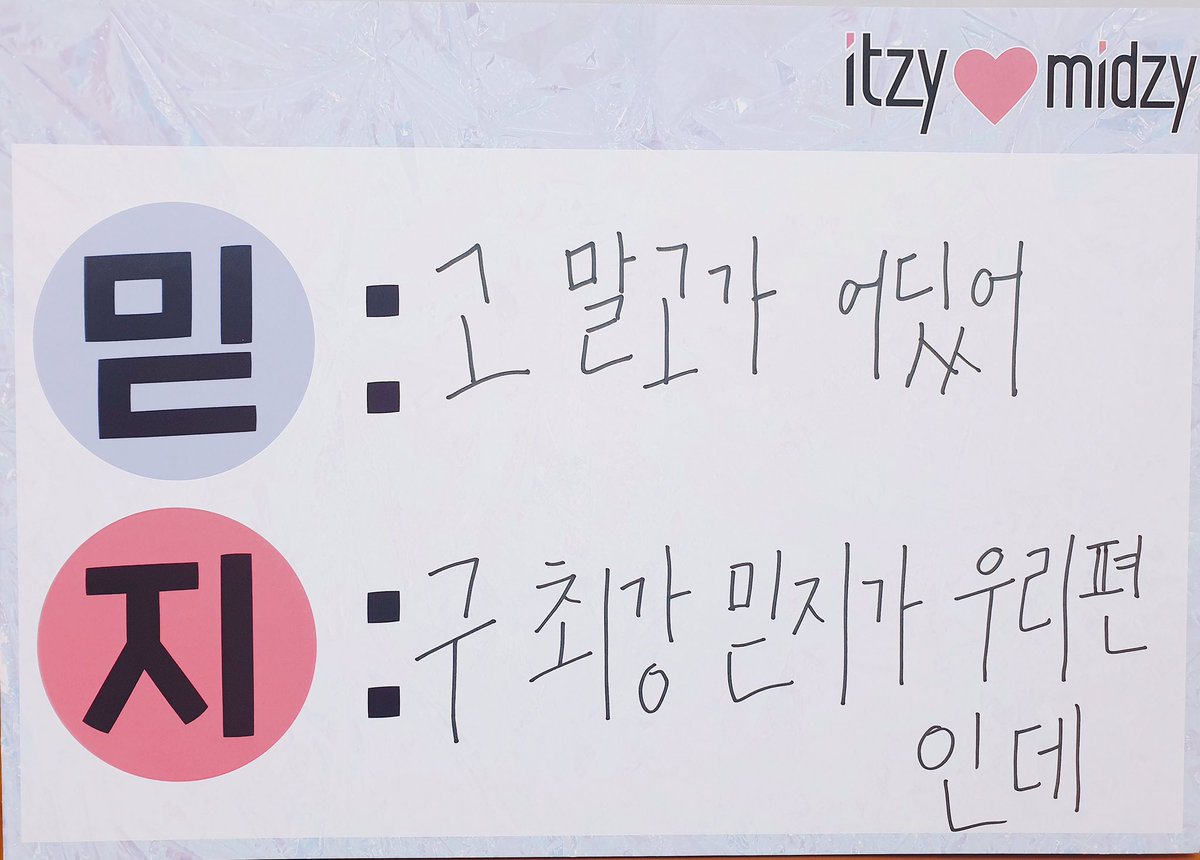 itzy midzy
믿 : 고 말고가 어딨어
지 : 구 최강 믿지가 우리편
인데